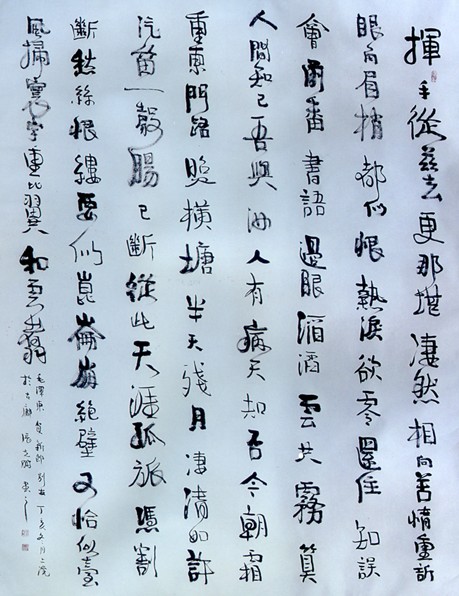 揮手從茲去更那堪淒然相向苦情重訴
眼角眉梢都似恨熱淚欲零還住知誤
會前番書語過眼滔滔雲共霧算
人間知己吾與汝人有病天知否今朝霜
重東門路照橫塘半天殘月淒清如許
汽笛一聲腸已斷從此天涯孤旅憑割
斷愁絲恨縷要似崑崙崩絕壁又恰似臺
風掃寰宇重比翼和雲翥
毛澤東賀新郎別友丁亥